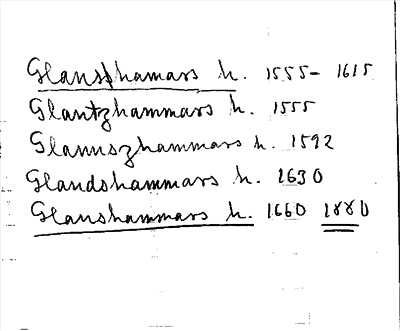 Glansshamars h. 1555-1615
Glantzhammars h. 1555
Glannszhammars h. 1592
Glandshammars h. 1630
Glanshammars h. 1660 1880